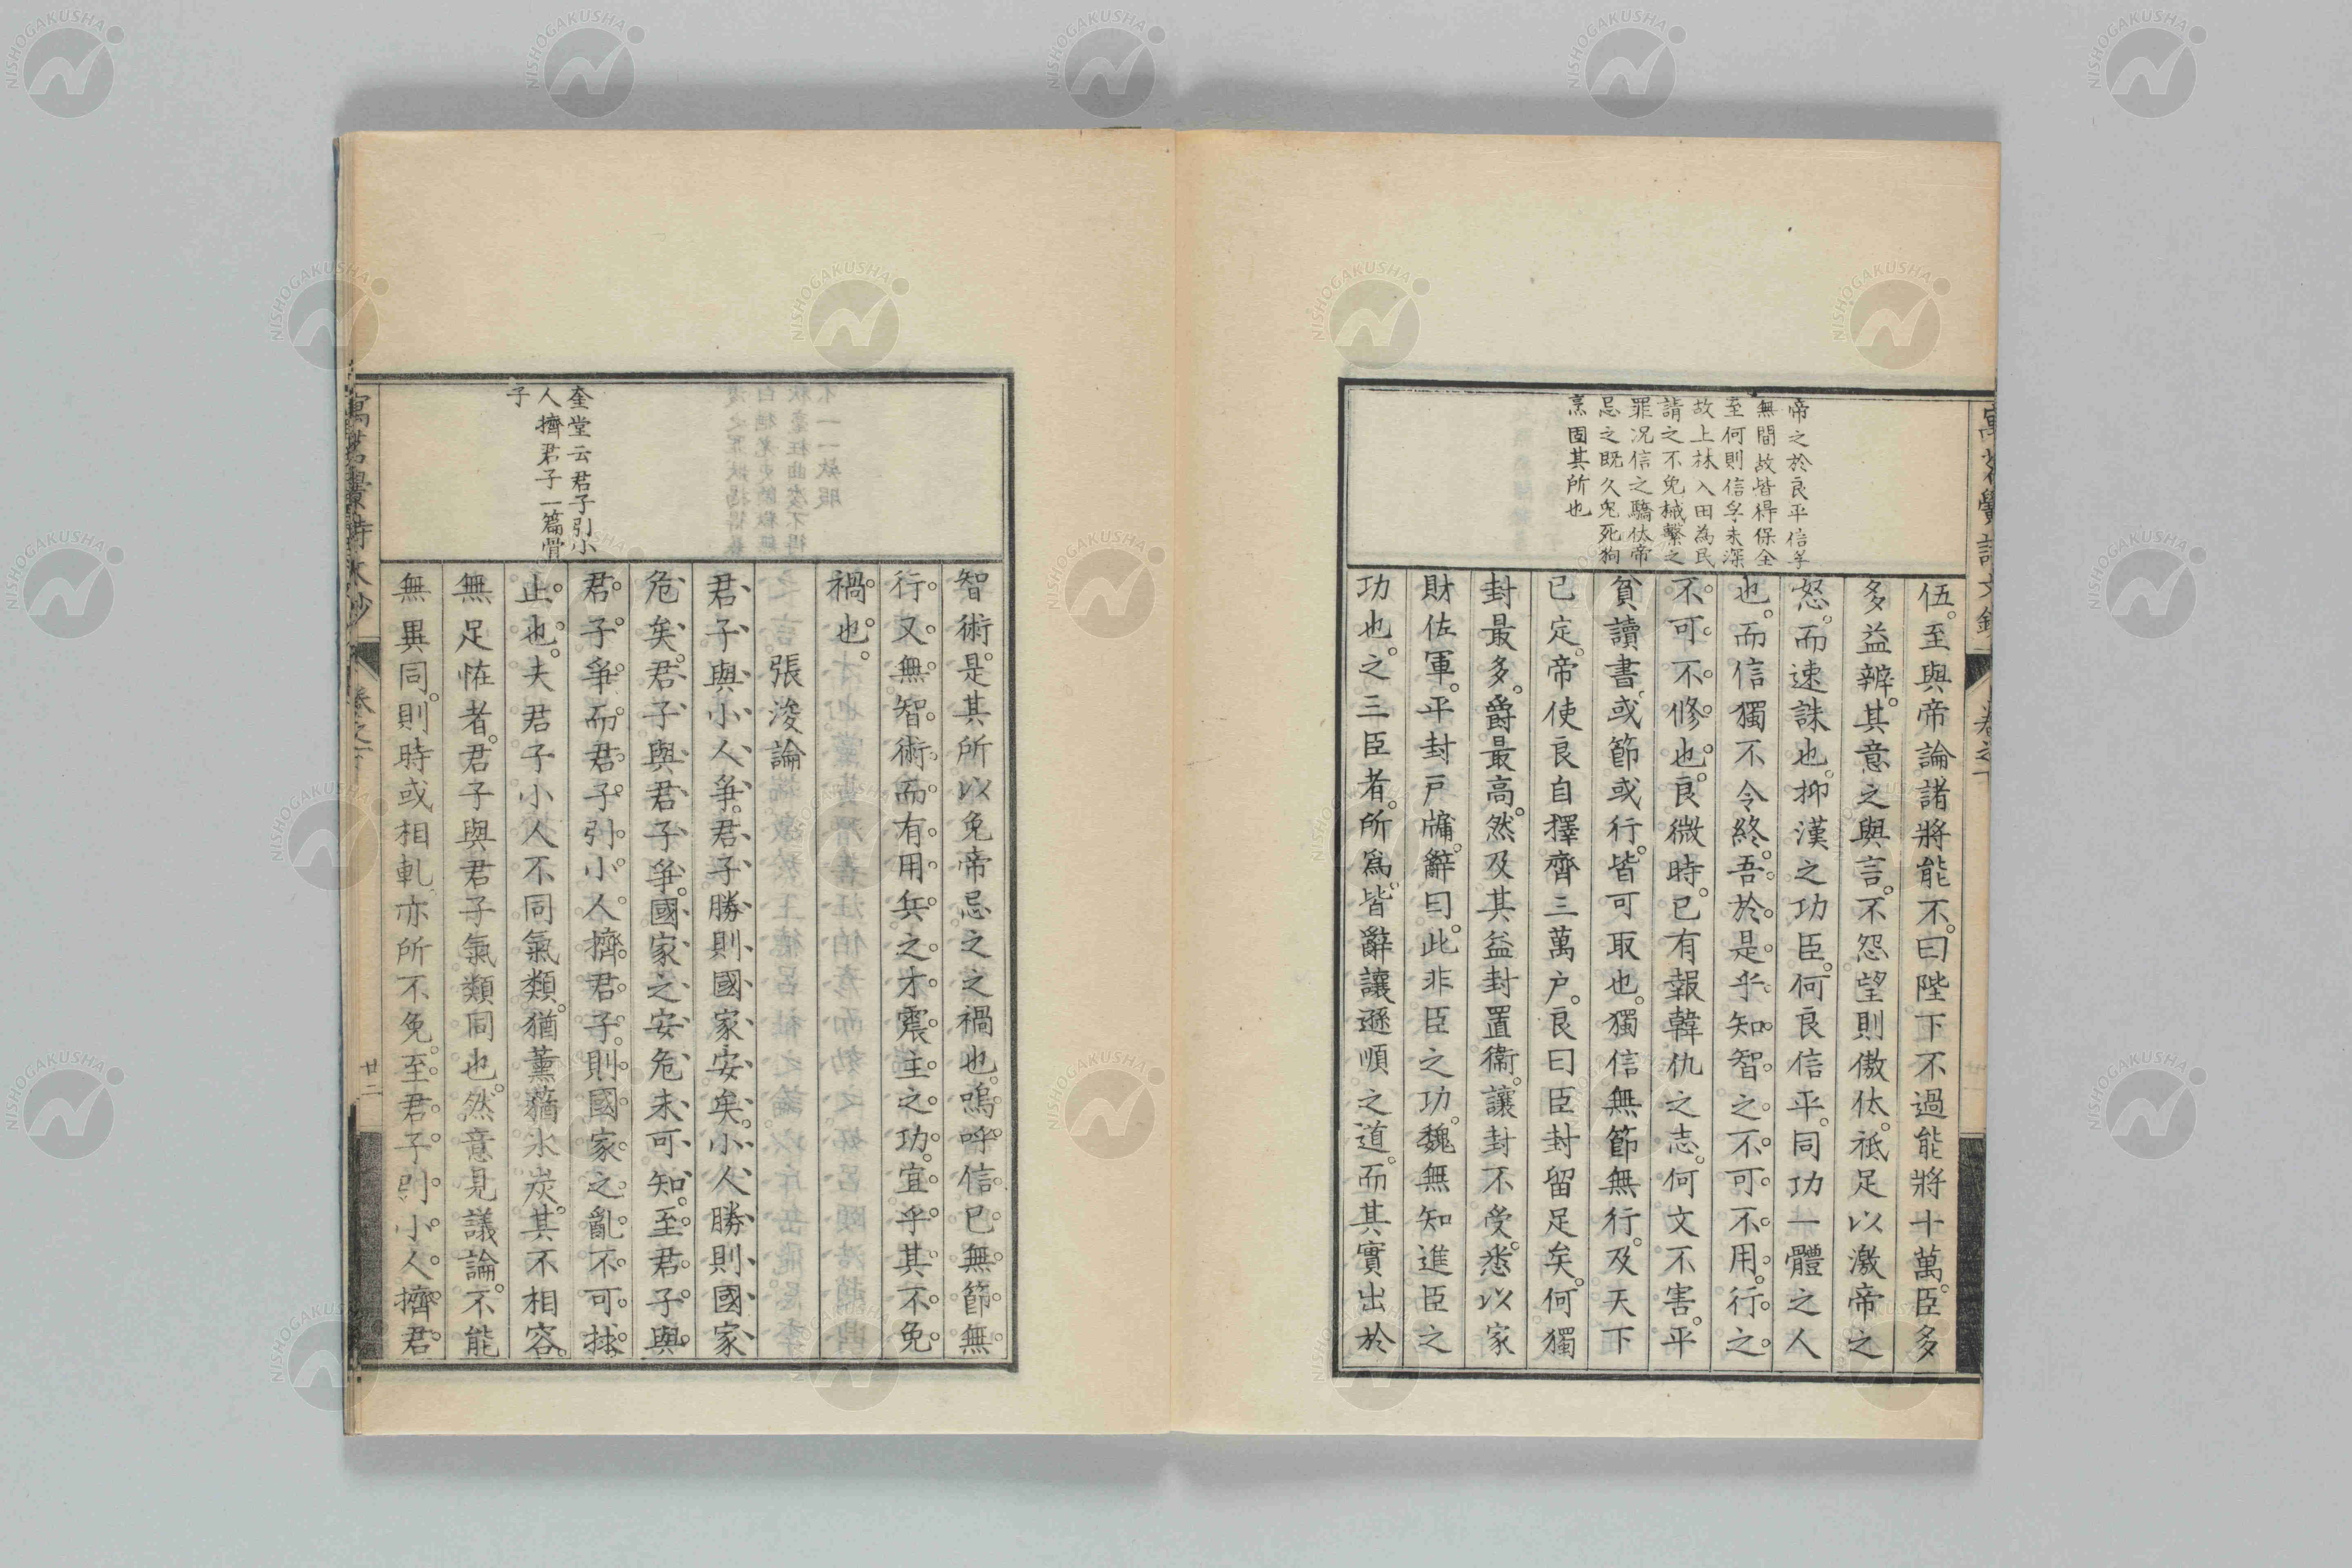 帝之於良平信孚
無間故皆得保全
至何則信孚未深
故上林入田為民
請之不免械繫之
罪况信之驕伕帝
忌之既久兔死狗
烹固其所也
伍。至與帝論諸將能不。曰陛下不過能將十萬。臣多
多益辨。其意之與言。不怨望則傲伕。祗足以激帝之
怒。而速誅也。抑漢之功臣。何良信平。同功一體之人
也。而信獨不令終。吾於是乎知智之不可不用。行之
不可不修也。良微時。已有報韓仇之志。何文不害。平
貧讀書。或節或行。皆可取也。獨信無節無行。及天下
已定。帝使良自擇齊三萬戶。良曰臣封留足矣。何獨
封最多。爵最高。然及其益封置衞。讓封不受。悉以家
財佐軍。平封戶牖。辭曰。此非臣之功。魏無知進臣之
功也。之三臣者。所爲。皆辭讓遜順之道。而其實出於
奎堂云君子引小
人擠君子一篇骨
子
智術。是其所以免帝忌之之禍也。嗚呼信已無節無
行。又無智術。而有用兵之才。震主之功。宜乎其不免
禍也。
張浚論
君子與小人爭。君子勝則國家安矣。小人勝則國家
危矣。君子與君子爭。國家之安危未可知。至君子與
君子爭。而君子引小人擠君子。則國家之亂不可捄
止也。夫君子小人不同氣類。猶薰蕕氷炭。其不相容。
無足恠者。君子與君子氣類同也。然意見議論。不能
無異同。則時或相軋。亦所不免。至君子引小人擠君
卷之下
廿二
NISHOGAKUSHA